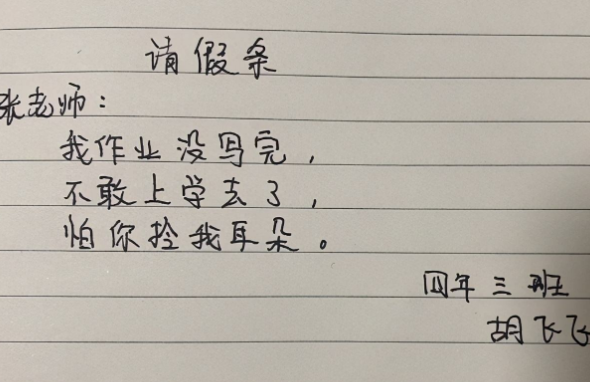 请假条
张老师：
我作业没写完，
不敢上学去了，
怕你拴我耳朵。
四年三班
胡飞飞